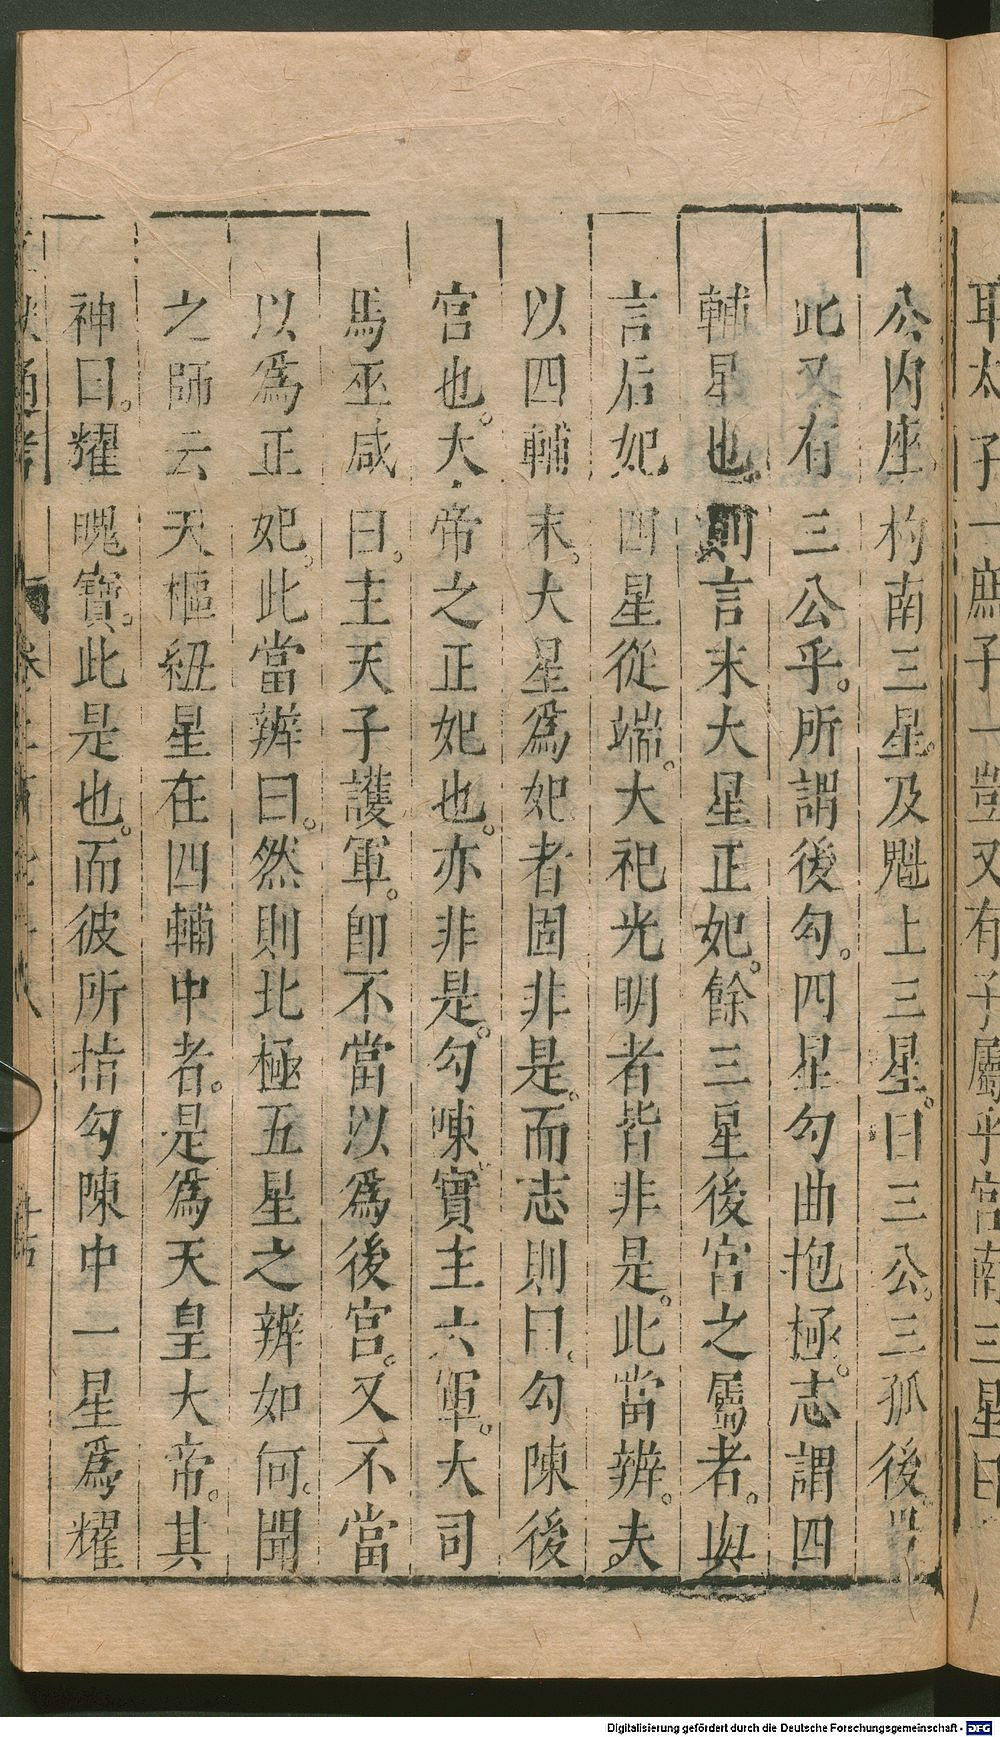 耳太子一庶子一豈又有子屬乎宮南三星曰
公内座杓南三星。及魁上三星。曰三公。三孤後。
此又有三公乎。所謂後勾。四星勾曲抱極。志謂四
輔星也。則言末大星正妃。餘三星後宮之屬者。與
言后妃四星從端。大祀光明者皆非是。此當辨。夫
以四輔末。大星為妃者固非是。而志則曰。勾陳後
宮也。大帝之正妃也。亦非是。勾陳實主六軍。大司
馬巫咸曰。主天子護軍。即不當以為後宮。又不當
以為正妃。此當辨曰。然則北極五星之辨如何。聞
之師云天樞紐星在四輔中者。是為天皇大帝。其
神曰。耀魄寶。此是也。而彼所指勾陳中一星為耀
Digitalisierung gefördert durch die Deutsche Forschungsgemeinschaft - DFG